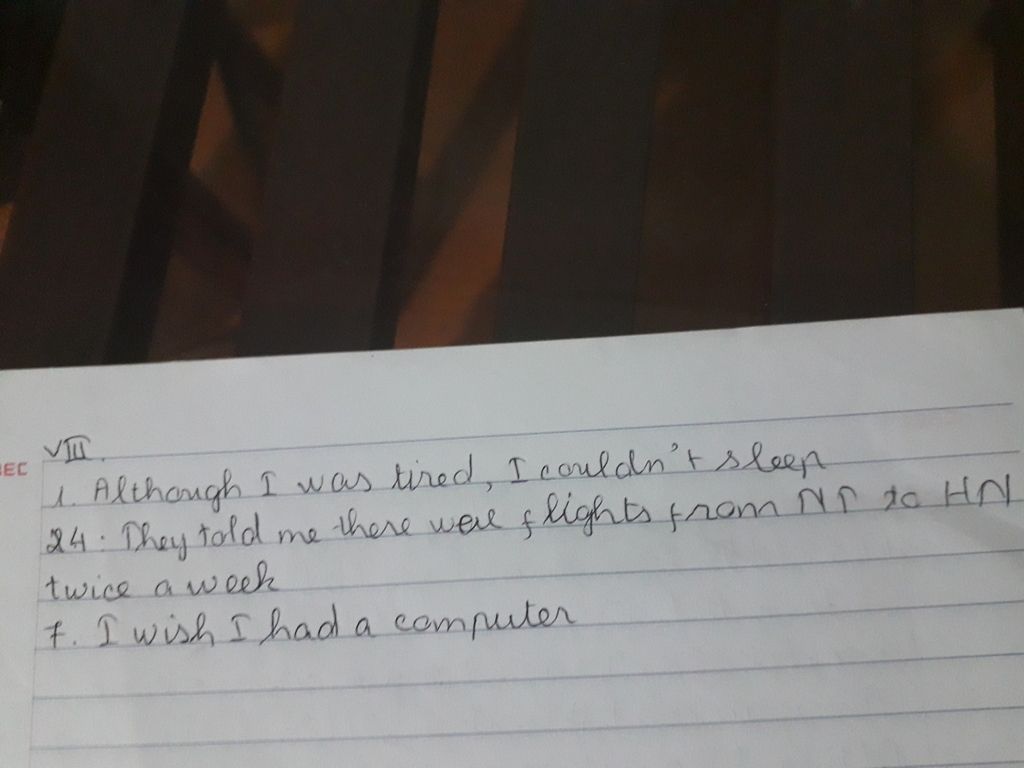 VIII.
EC
1. Although I was tired, I couldn't sleep
24: They told me there were flights from NT to HN
twice a week
7. I wish I had a computer